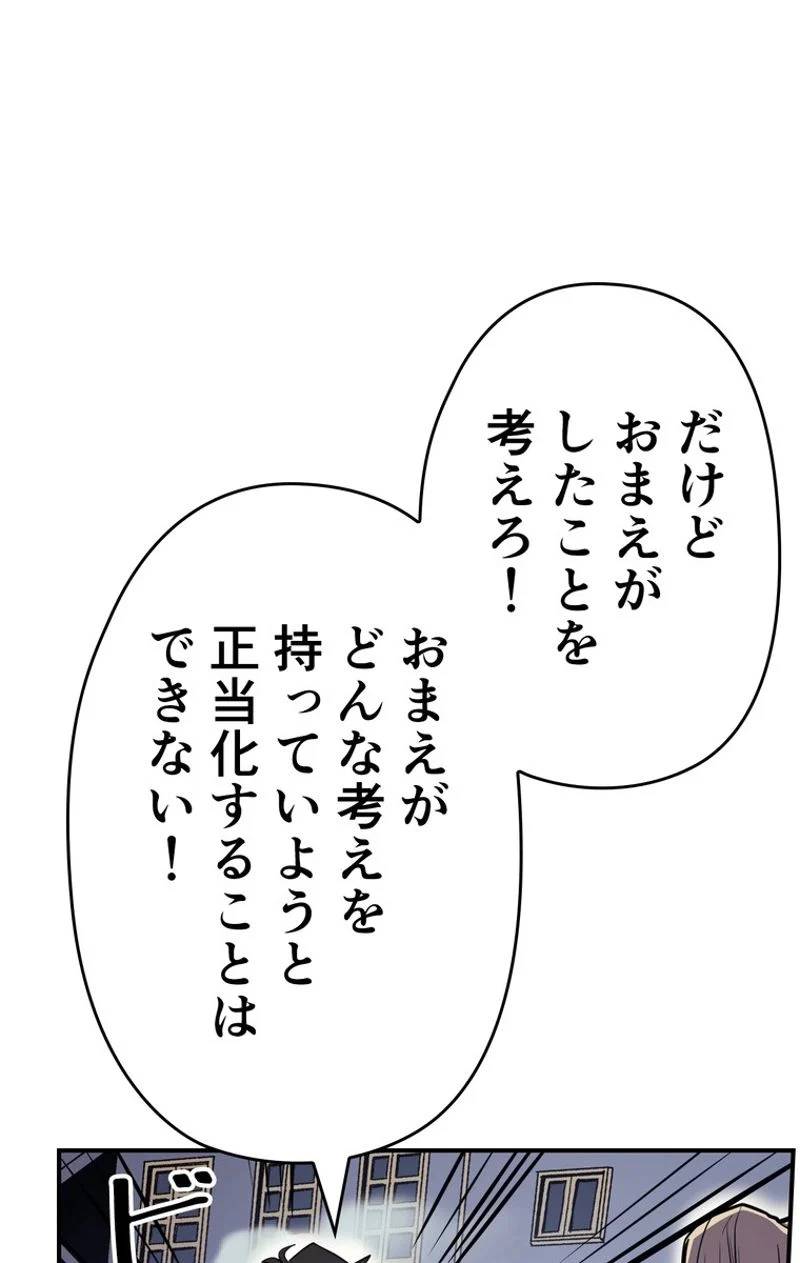 だけど
おまえが
したことを
考えろ！
おまえが
どんな考えを
持っていようと
正当化することは
できない！
ド